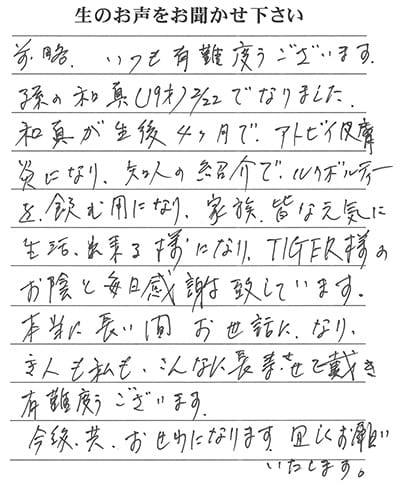 生のお声をお聞かせ下さい
前略. いつも有難度うございます.
孫の和真(19才)2/22でなりました.
和真が生後4ヶ月で、アトピイ皮膚
炎になり、知人の紹介で、ルイボルティー
を、飲む用になり、家族、皆な元気に
生活、出来る様になり、TIGER様の
お陰と毎日感謝致しています。
本当に長い間 お世話に、なり、
主人も私も、こんなに長寿させて戴き
有難度うございます.
今後、共、おせわになります 宜しくお願い
いたします。